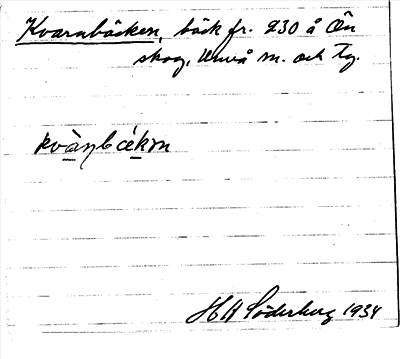 Kvarnbäcken, bäck fr. 230 å Ön
skog, Umeå m. och Tg.
kvà̱ɳbéḵm
H H Söderberg 1934